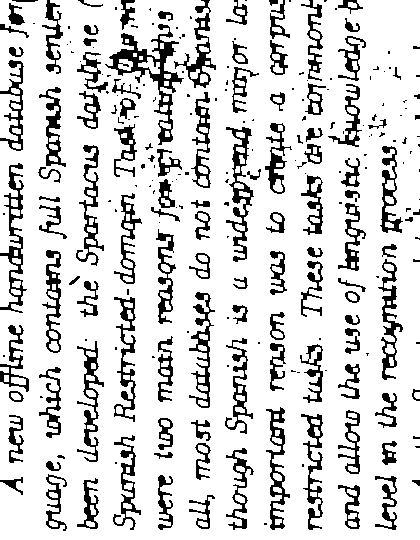 A new offline handwritten database for
guage, which contains full Spanish senten
been developed: the Spartacus database (
Spanish Restricted-domain Task of
were two main reasons for creating this
all, most databases do not contain Spanis
though Spanish is a widespread major la
important reason was to create a corpus
restricted tasks. These tasks are common
and allow the use of linguistic knowledge b
level in the recognition process.